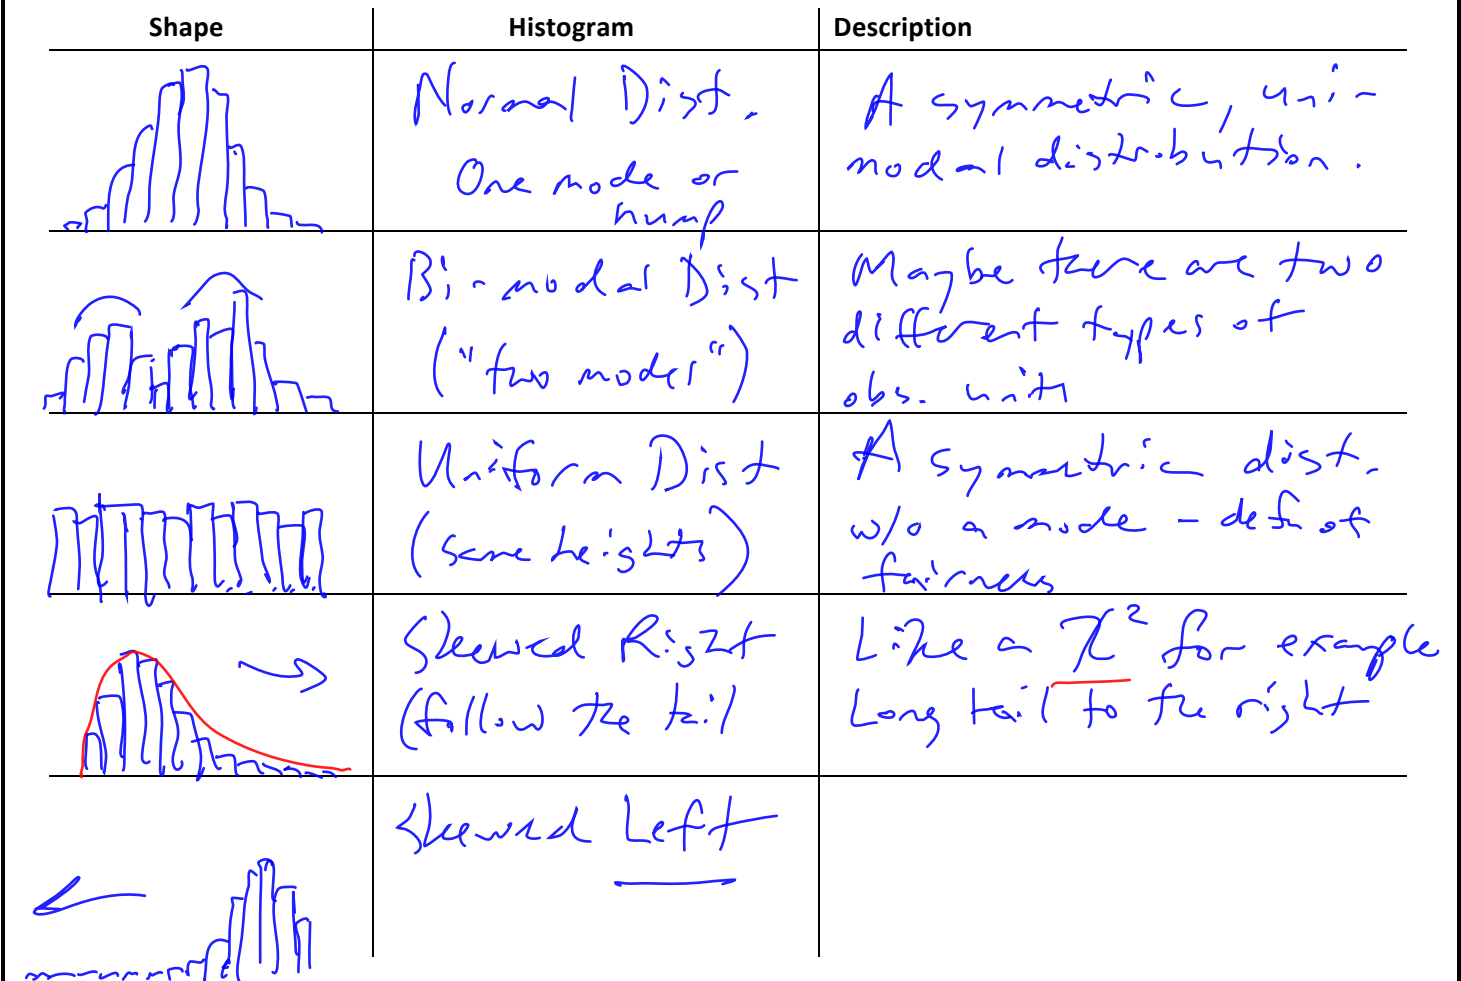 Shape Histogram Description
Normal Dist.
One mode or
hump
A symmetric, uni-
modal distribution.
Bi-modal Dist
("two modes")
Maybe there are two
different types of
obs. units
Uniform Dist
(same heights)
A symmetric dist.
w/o a mode - defn of
fairness
Skewed Right
(follow the tail
Like a χ² for example
Long tail to the right
Skewed Left